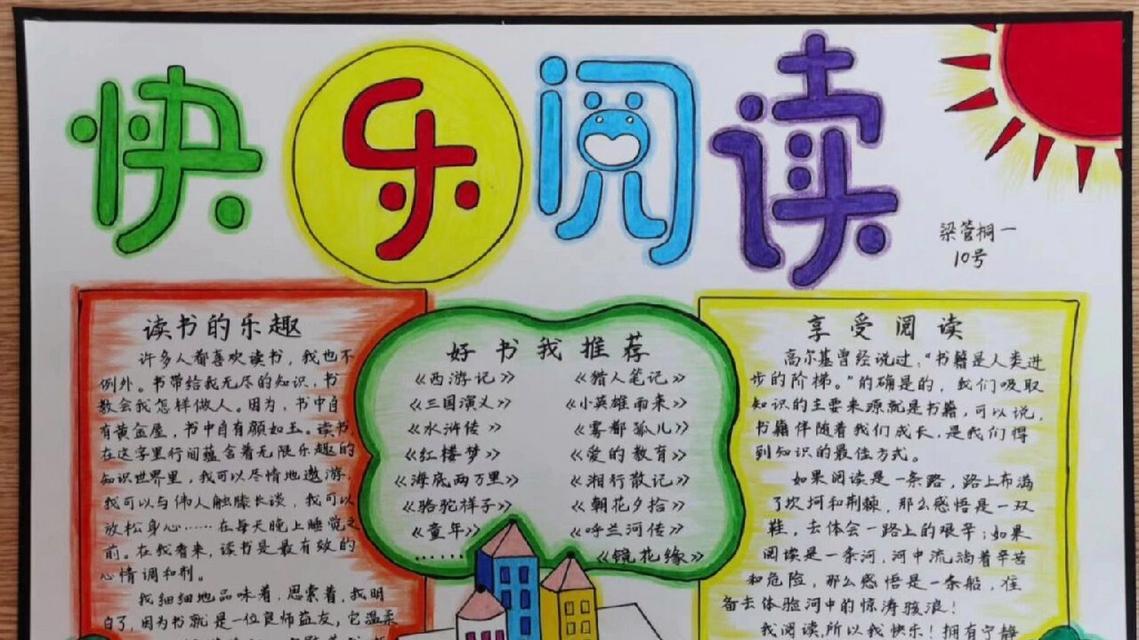 快乐阅读
梁管桐一
10号
读书的乐趣
许多人都喜欢读书，我也不
例外。书带给我无尽的知识，书
教会我怎样做人。因为，书中自
有黄金屋，书中自有颜如玉。读书
在这字里行间蕴含着无限乐趣的
知识世界里，我可以尽情地遨游，
我可以与伟人触膝长谈，我可以
放松身心……在每天晚上睡觉之
前。在我看来，读书是最有效的
心情调和剂。
我细细地品味着，思索着，我明
白了，因为书就是一位良师益友，它温柔
好书我推荐
《西游记》 《猎人笔记》
《三国演义》 《小英雄雨来》
《水浒传》 《雾都孤儿》
《红楼梦》 《爱的教育》
《海底两万里》 《湘行散记》
《骆驼祥子》 《朝花夕拾》
《童年》 《呼兰河传》
…… 《镜花缘》
享受阅读
高尔基曾经说过，“书籍是人类进
步的阶梯。”的确是的，我们吸取
知识的主要来源就是书籍，可以说，
书籍伴随着我们成长，是我们得
到知识的最佳方式。
如果阅读是一条路，路上布满
了坎坷和荆棘，那么感悟是一双
鞋，去体会一路上的艰辛；如果
阅读是一条河，河中流淌着辛苦
和危险，那么感悟是一条船，准
备去体验河中的惊涛骇浪！
我阅读，所以我快乐！拥有